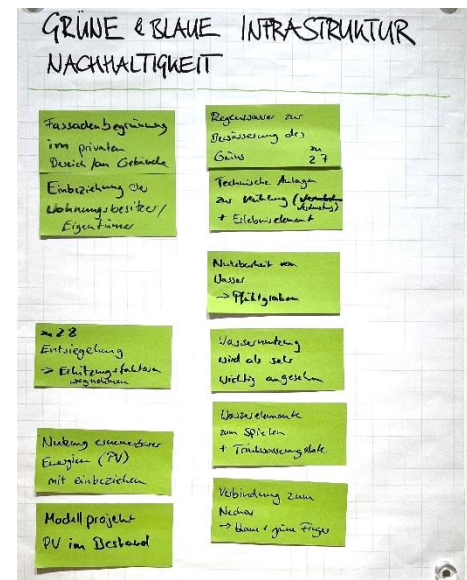 GRÜNE & BLAUE INFRASTRUKTUR
NACHHALTIGKEIT
Fassadenbegrünung
im privaten
Bereich /am Gebäude
Einbeziehung der
Wohnungsbesitzer/
Eigentümer
zu 2.8
Entsiegelung
-> Erhitzungsfaktoren
wegnehmen
Nutzung erneuerbarer
Energien (PV)
mit einbeziehen
Modellprojekt
PV im Bestand
Regenwasser zur
Bewässerung des
Grüns zu
2.7
Technische Anlagen
zur Kühlung
+ Erlebniselement
Nutzbarkeit von
Wasser
-> Pfühlgraben
Wassernutzung
wird als sehr
wichtig angesehen
Wasserelemente
zum Spielen
+ Trinkwasserangebote
Verbindung zum
Neckar
-> blaue + grüne Finger